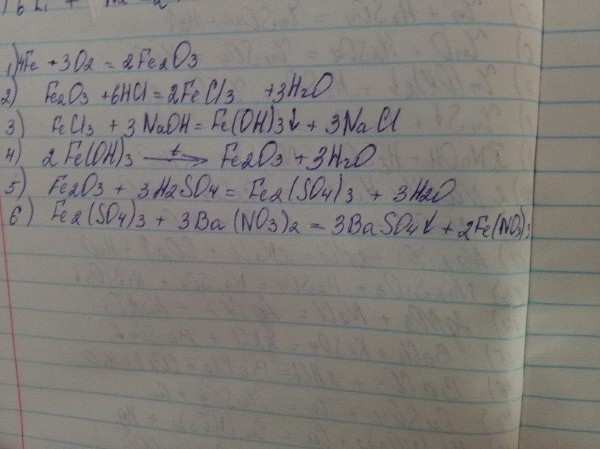 1) 4Fe + 3O2 = 2Fe2O3
2) Fe2O3 + 6HCl = 2FeCl3 + 3H2O
3) FeCl3 + 3NaOH = Fe(OH)3↓ + 3NaCl
4) 2Fe(OH)3 —t→ Fe2O3 + 3H2O
5) Fe2O3 + 3H2SO4 = Fe2(SO4)3 + 3H2O
6) Fe2(SO4)3 + 3Ba(NO3)2 = 3BaSO4↓ + 2Fe(NO3)3